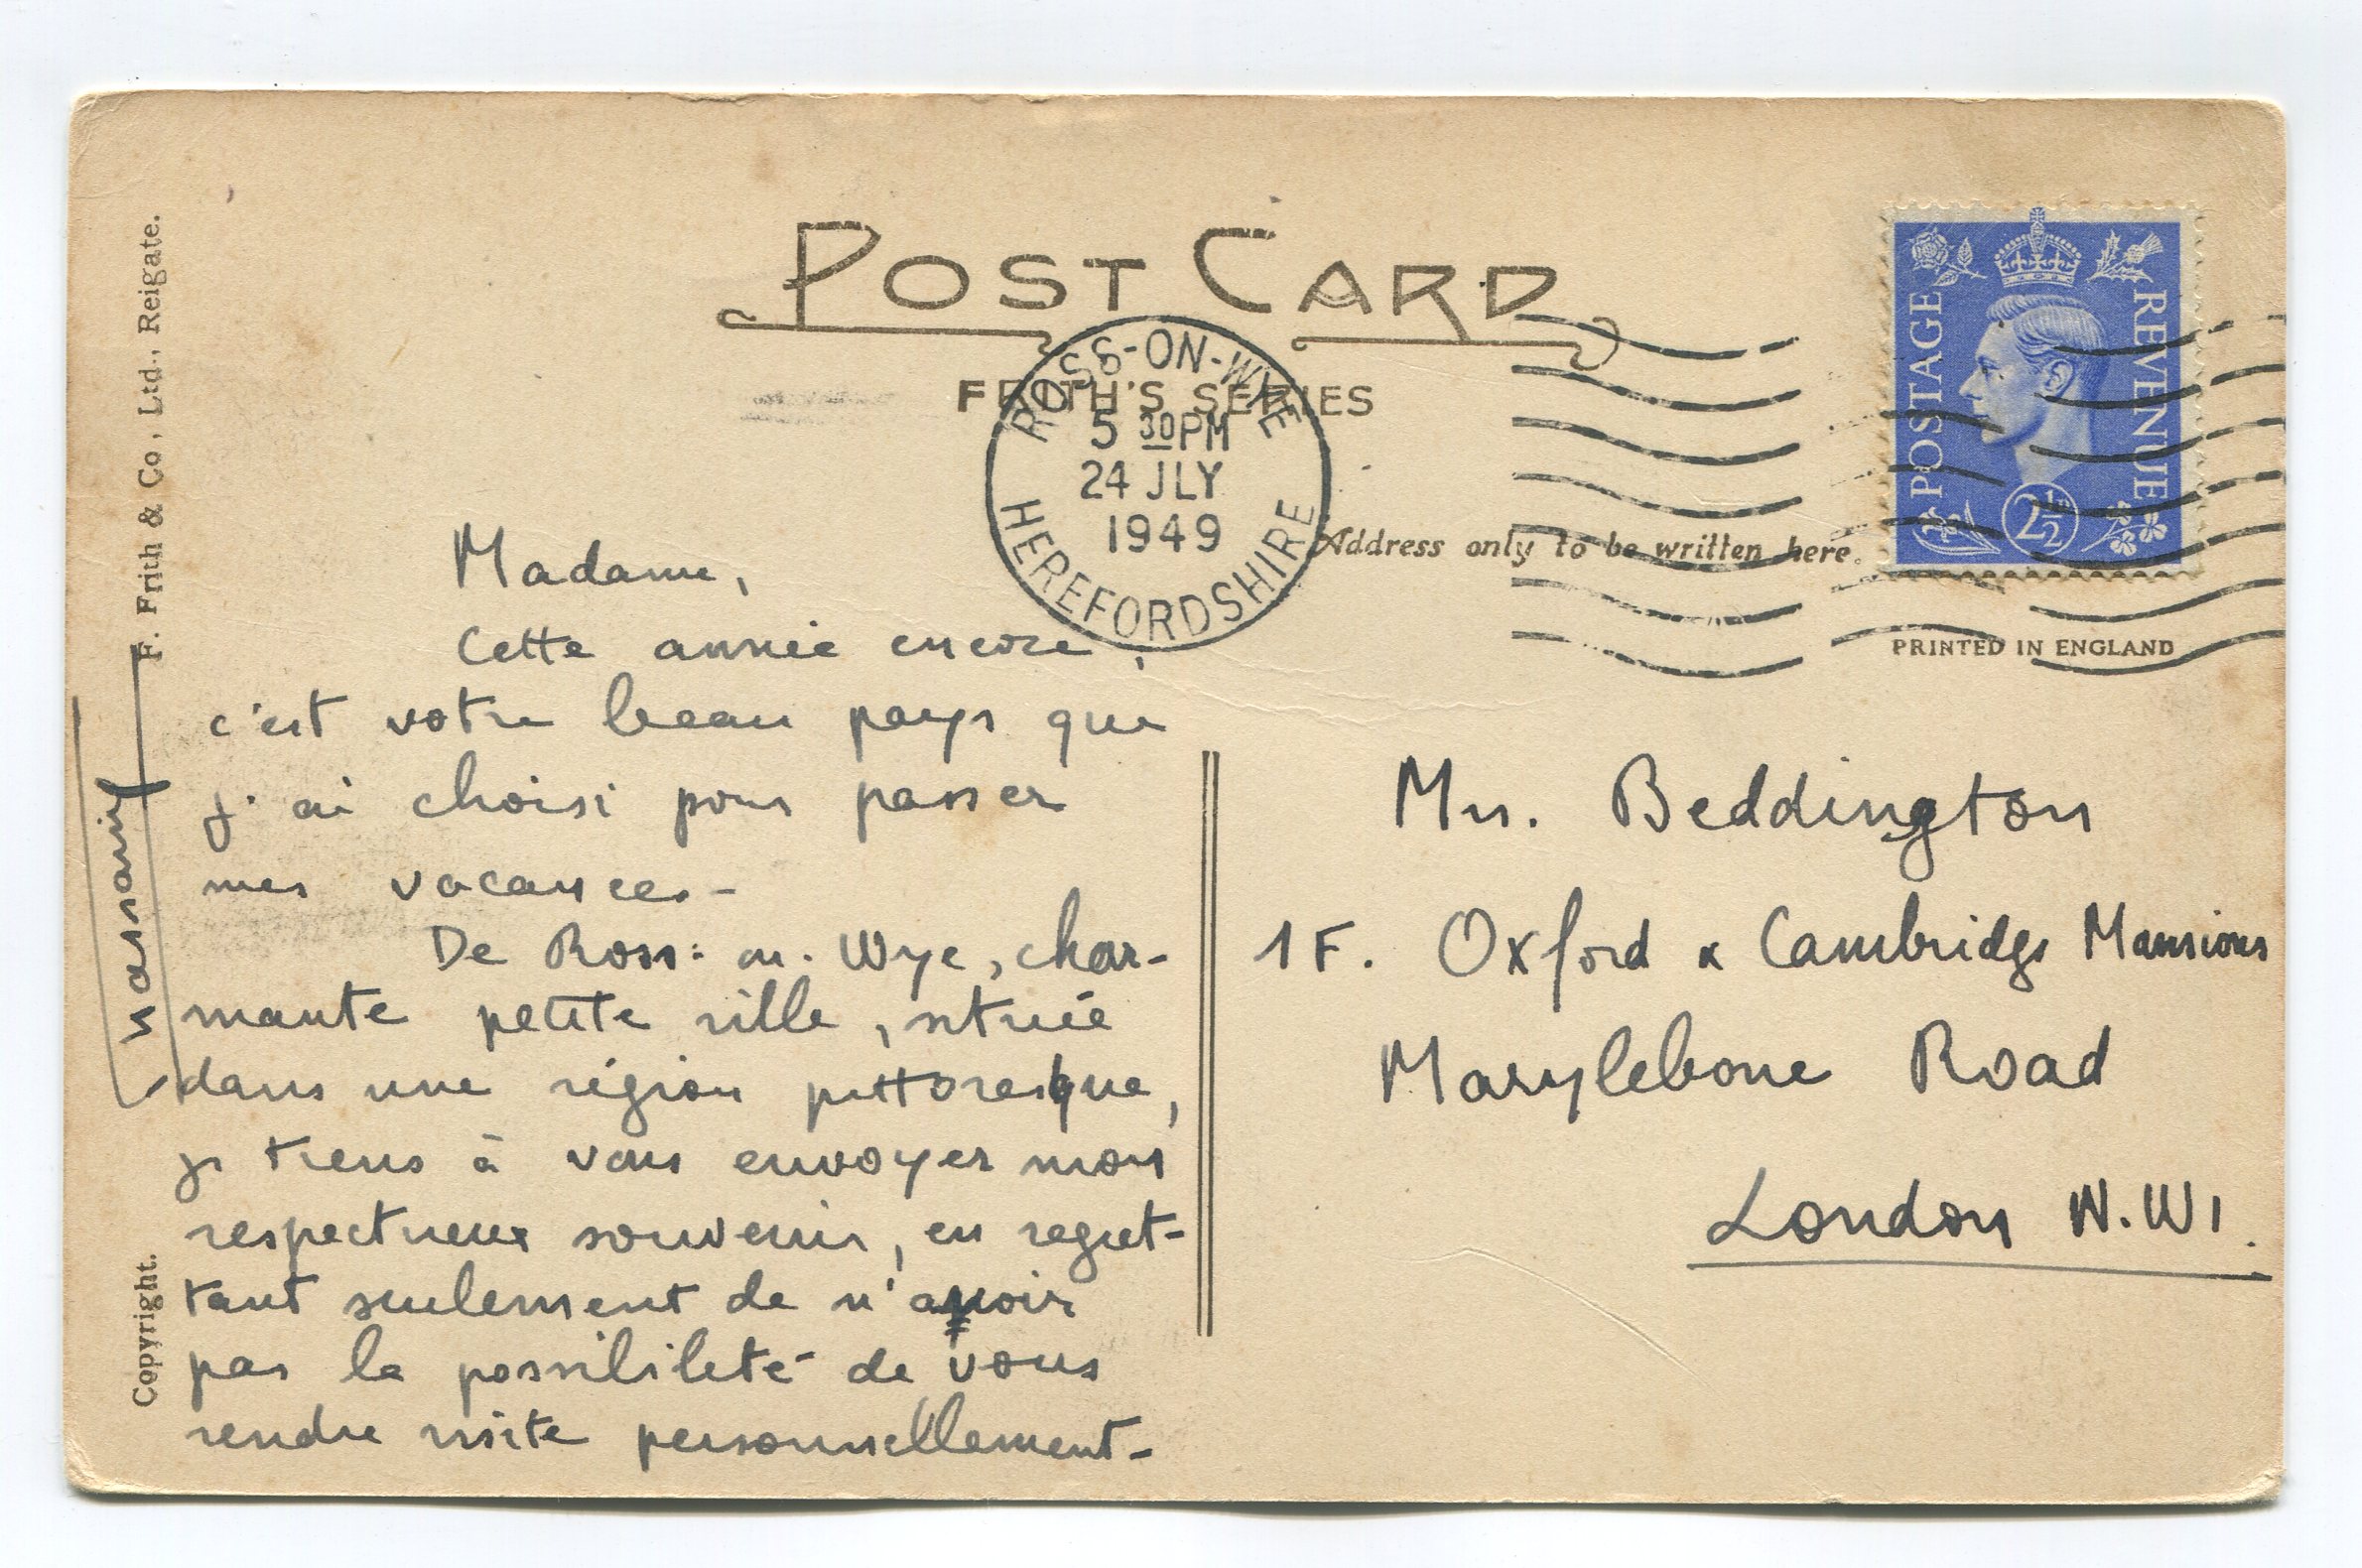 POST CARD
FRITH'S SERIES
ROSS-ON-WYE
5 30PM
24 JLY
1949
HEREFORDSHIRE
Address only to be written here.
POSTAGE
REVENUE
2½
PRINTED IN ENGLAND
F. Frith & Co, Ltd., Reigate.
Copyright.
Madame,
Cette année encore,
c'est votre beau pays que
j'ai choisi pour passer
mes vacances-
De Ross-on-Wye, char-
mante petite ville, située
dans une région pittoresque,
je tiens à vous envoyer mon
respectueux souvenir, en regret-
tant seulement de n'avoir
pas la possibilité de vous
rendre visite personnellement-
Mrs. Beddington
1F. Oxford & Cambridge Mansions
Marylebone Road
London N.W1.